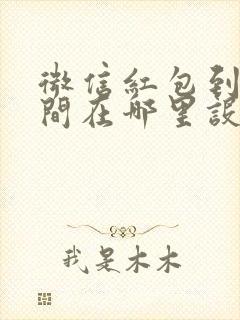 微信紅包到
間在哪里設
我是木木